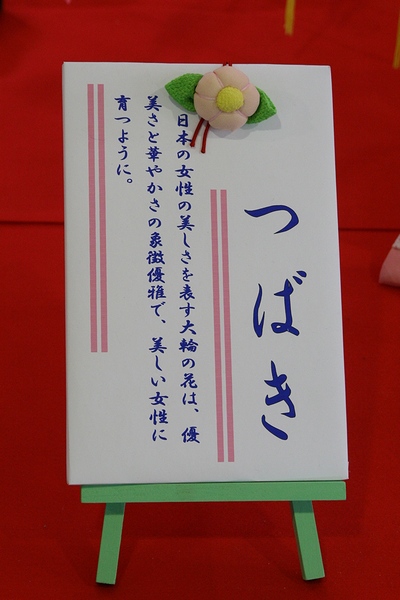 つばき
日本の女性の美しさを表す大輪の花は、優
美さと華やかさの象徴優雅で、美しい女性に
育つように。